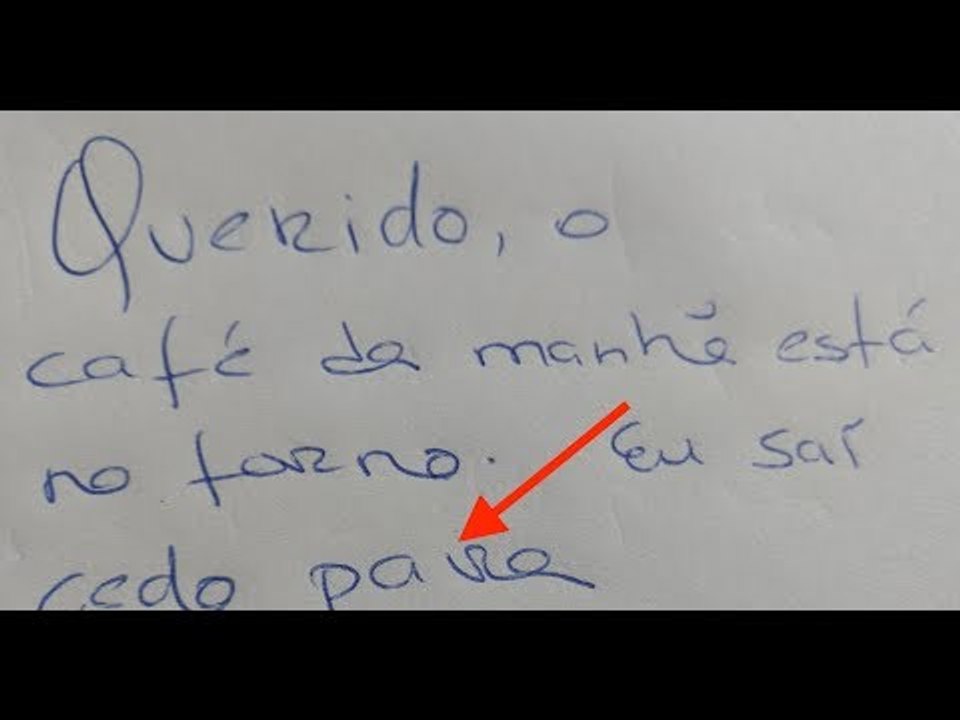 Querido, o
café da manhã está
no forno. Eu saí
cedo para